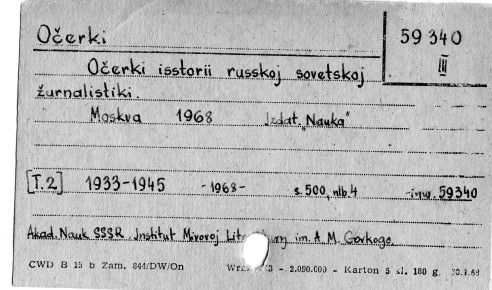 Očerki
59 340
III
Očerki isstorii russkoj sovetskoj
žurnalistiki.
Moskva 1968 Izdat. „Nauka"
[T.2] 1933-1945 -1968- s. 500, nlb. 4 -inw. 59340
Akad. Nauk SSSR Institut Mirovoj im. A. M. Gorkogo.
CWD B 15 b Zam. 844/DW/On - 2.090.000 - Karton 5 kl. 180 g.